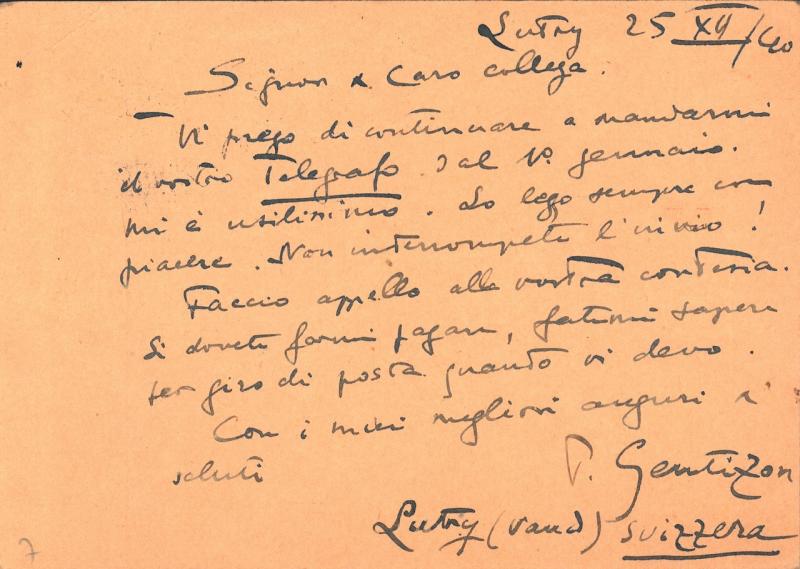 Lutry 25 XII/40
Signor e Caro collega.
Vi prego di continuare a mandarmi
il vostro Telegrafo dal 1º gennaio.
mi è utilissimo. Lo lego sempre con
piacere. Non interrompete l'invio!
Faccio appello alla vostra cortesia.
Si dovete farmi pagare, fatemi sapere
per giro di posta quanto vi devo.
Con i miei migliori auguri e
saluti
P. Gentizon
Lutry (Vaud) Svizzera
7